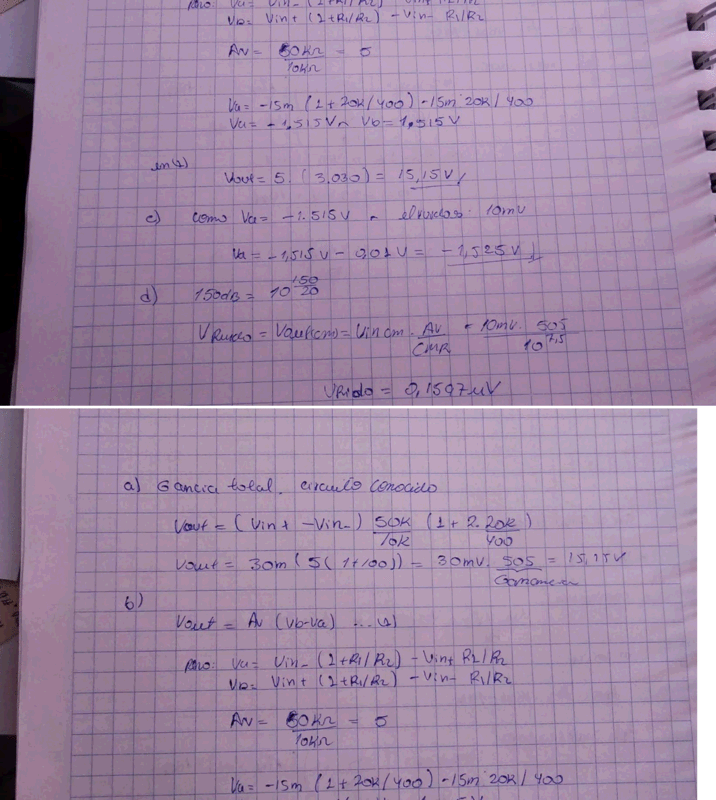 Va= Vin- (1+R1/R2) - Vin+ R1/R2
Vb= Vin+ (1+R1/R2) - Vin- R1/R2
Av= 50kΩ/10kΩ = 5
Va= -15m (1+20k/400) -15m 20k/400
Va= -1,515V Vb=1,515V
en(1)
Vout= 5. (3,030) = 15,15V
c) como Va= -1.515V 10mV
Va= -1,515V - 0,01V = -1,525V
d) 150dB = 10^150/20
VRuido = = Vin cm. Av/CMR = 10mV. 505/10^7,5
VRuido = 0,1597uV
a) Gancia total. circuito conocido
Vout = (Vin+ - Vin-) 50k/10k (1+ 2.20k/400)
Vout = 30m (5(1+100)) = 30mV. 505 = 15,15V
Ganancia
b)
Vout = Av (Vb-Va) ... (1)
pero: Va= Vin- (1+R1/R2) - Vin+ R1/R2
Vb= Vin+ (1+R1/R2) - Vin- R1/R2
Av= 50kΩ/10kΩ = 5
Va= -15m (1+20k/400) -15m 20k/400